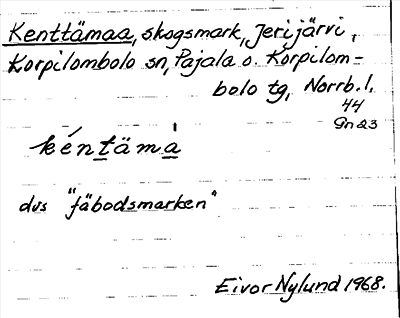 Kenttämaa, skogsmark, Jerijärvi,
Korpilombolo sn, Pajala o. Korpilom=
bolo tg, Norrb. l.
44
9n23
kéntämà
dvs "fäbodsmarken"
Eivor Nylund 1968.